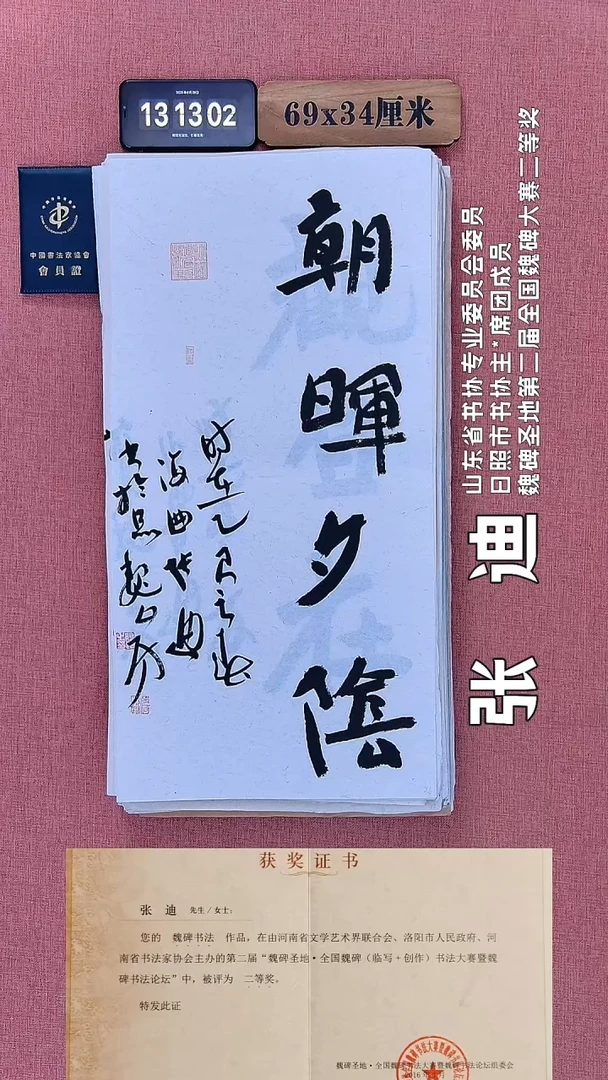 13 13 02
69x34厘米
中國書法家協會
會員證
朝暉夕陰
时在乙巳之春
海曲张迪
书於思魏山房
山东省书协专业委员会委员
日照市书协主*席团成员
魏碑圣地第二届全国魏碑大赛二等奖
张 迪
获奖证书
张 迪 先生/女士:
您的 魏碑书法 作品,在由河南省文学艺术界联合会、洛阳市人民政府、河
南省书法家协会主办的第二届“魏碑圣地·全国魏碑(临写+创作)书法大赛暨魏
碑书法论坛”中,被评为 二等奖。
特发此证
魏碑圣地·全国魏碑书法大赛暨魏碑书法论坛组委会